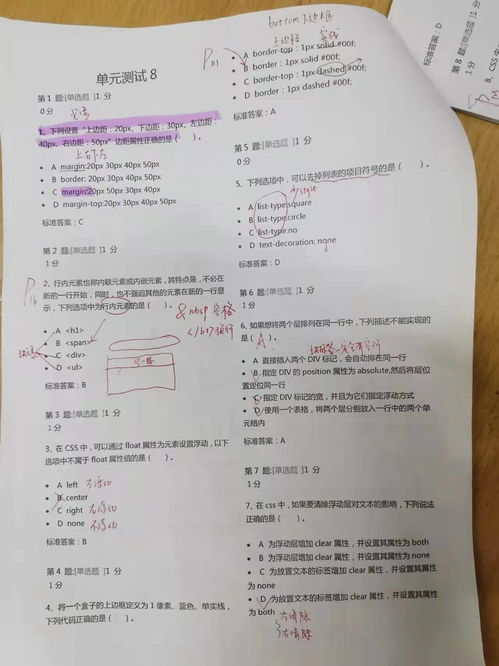 单元测试 8
第 1 题:[单选题 ]1 分
0 分
1、下列设置“上边距：20px、下边距：30px、左边距：
40px、右边距：50px”边距属性正确的是（ ）。
上右下左
A margin:20px 30px 40px 50px
B border: 20px 30px 40px 50px
C margin:20px 50px 30px 40px
D margin-top:20px 30px 40px 50px
标准答案：C
第 2 题:[单选题 ]1 分
1 分
2、行内元素也称内联元素或内嵌元素，其特点是，不必在
新的一行开始，同时，也不强迫其他的元素在新的一行显
示，下列选项中为行内元素的是（ ）。
&nbsp 空格
A <h1>
B <span>
C <div>
D <ul>
标准答案：B
第 3 题:[单选题 ]1 分
1 分
3、在 CSS 中，可以通过 float 属性为元素设置浮动，以下
选项中不属于 float 属性值的是（ ）。
A left 左浮动
B center
C right 右浮动
D none 不浮动
标准答案：B
第 4 题:[单选题 ]1 分
1 分
4、将一个盒子的上边框定义为 1 像素、蓝色、单实线，
下列代码正确的是（ ）。
bottom 下边框
上边框 实线
P111
A border-top：1px solid #00f;
B border：1px solid #00f;
C border-top：1px dashed #00f;
D border：1px dashed #00f;
标准答案：A
第 5 题:[单选题 ]1 分
1 分
5、下列选项中，可以去掉列表的项目符号的是（ ）。
style
A list-type:square
B list-type:circle
C list-type:no
D text-decoration: none
标准答案：D
第 6 题:[单选题 ]1 分
1 分
6、如果想将两个层排列在同一行中，下列描述不能实现的
是（ A ）。
A 直接插入两个 DIV 标记，会自动排在同一行
B 指定 DIV 的 position 属性为 absolute,然后将层位
置定位同一行
C 指定 DIV 标记的宽，并且为它们指定浮动方式
D 使用一个表格，将两个层分别放入一行中的两个单
元格内
标准答案：A
第 7 题:[单选题 ]1 分
1 分
7、在 css 中，如果要清除浮动层对文本的影响，下列说法
正确的是（ ）。
A 为浮动层增加 clear 属性，并设置其属性为 both
B 为浮动层增加 clear 属性，并设置其属性为 none
C 为放置文本的标签增加 clear 属性，并设置其属性
为 none
D 为放置文本的标签增加 clear 属性，并设置其属性
为 both
左清除
右清除
标准答案：D
第 8 题:[单选题